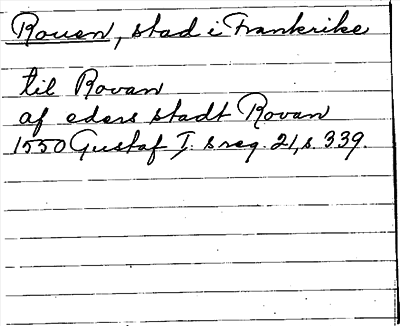 Rouen, stad i Frankrike
til Rovan
af eders stadt Rovan
1550 Gustaf I. s reg. 21, s. 339.